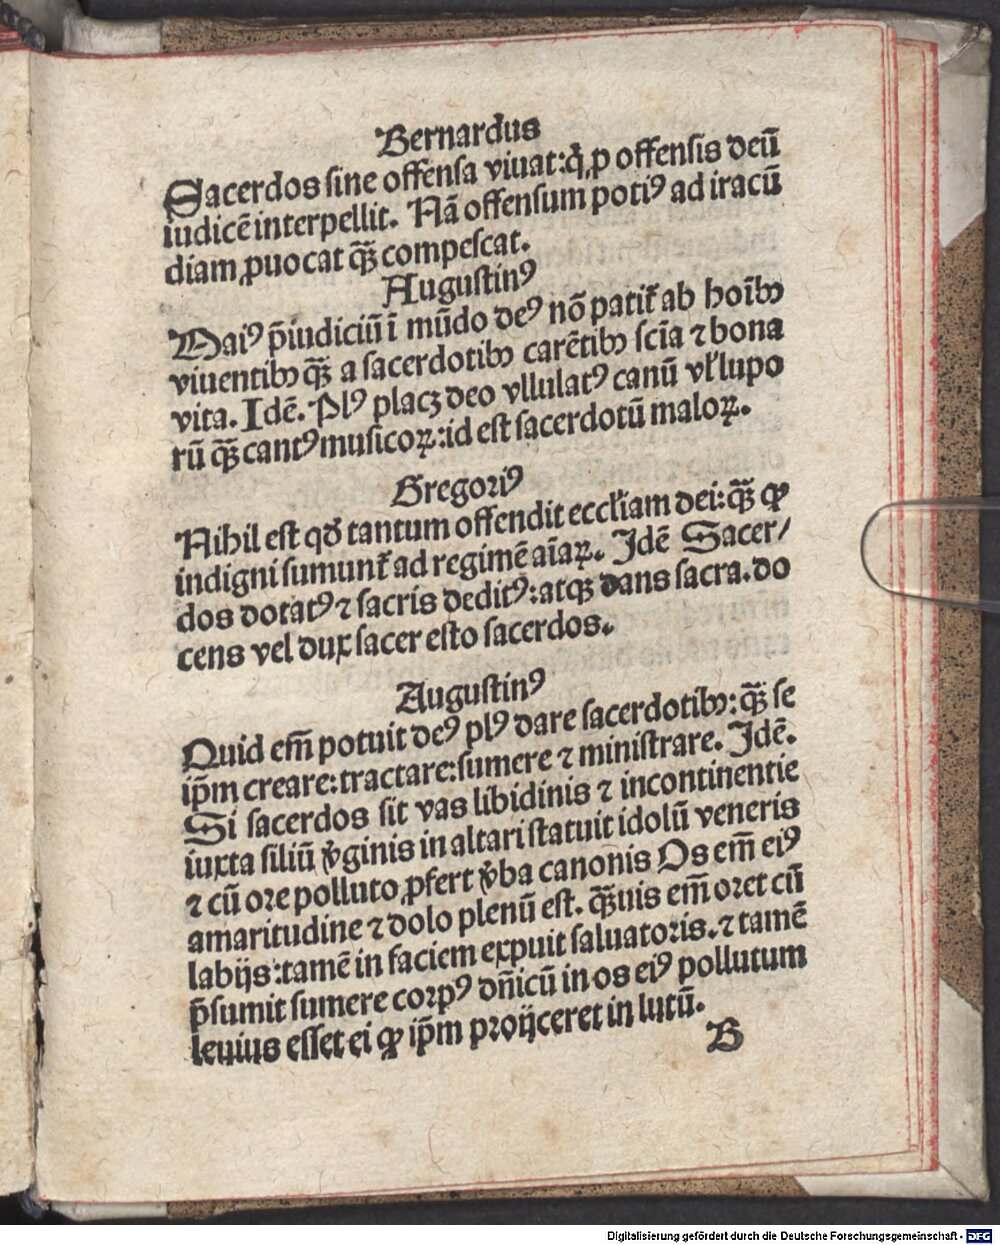 Bernardus
Sacerdos sine offensa viuat:q̄ ꝓ offensis deū
iudicē interpellit. Nā offensum potiꝰ ad iracū
diam ꝓuocat qꝫ̄ compescat.
Augustinꝰ
Maiꝰ p̄iudiciū ī mūdo deꝰ nō patit᷑ ab hoībꝫ
viuentibꝫ qꝫ̄ a sacerdotibꝫ carētibꝫ scīa ⁊ bona
vita. Idē. Plꝰ placꝫ deo vllulatꝰ canū vł lupo
rū qꝫ̄ cantꝰ musicoꝝ: id est sacerdotū maloꝝ.
Gregoriꝰ
Nihil est qd̄ tantum offendit eccłiam dei: qꝫ̄ ꝙ
indigni sumunt᷑ ad regimē aīaꝝ. Idē Sacer/
dos dotatꝰ ⁊ sacris deditꝰ: atqꝫ dans sacra. do
cens vel dux sacer esto sacerdos.
Augustinꝰ
Quid em̄ potuit deꝰ plꝰ dare sacerdotibꝫ: qꝫ̄ se
ip̄m creare: tractare: sumere ⁊ ministrare. Idē.
Si sacerdos sit vas libidinis ⁊ incontinentie
iuxta filiū v̄ginis in altari statuit idolū veneris
⁊ cū ore polluto ꝓfert v̄ba canonis Os em̄ eiꝰ
amaritudine ⁊ dolo plenū est. qꝫ̄uis em̄ oret cū
labijs: tamē in faciem expuit saluatoris. ⁊ tamē
p̄sumit sumere corpꝰ dn̄icū in os eiꝰ pollutum
leuius esset ei ꝙ ip̄m proijceret in lutū.
B
Digitalisierung gefördert durch die Deutsche Forschungsgemeinschaft - DFG